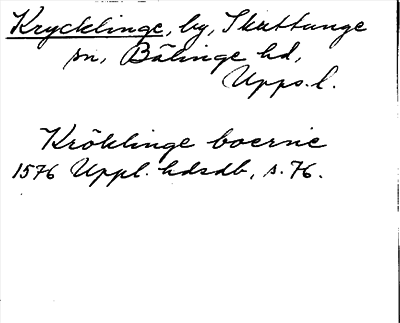 Krycklinge, by, Skuttunge
sn, Bälinge hd,
Upps. l.
Kröklinge boerne
1576 Uppl. hdsdb, s. 76.